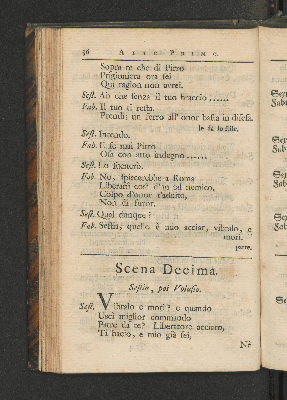 36 ATTO PRIMO.
Sopra te che di Pirro
Prigioniera ora sei
Qui ragion non avrei.
Sest. Ah che senza il tuo braccio ......
Fab. Il tuo ti resta.
Prendi: un ferro all' onor basta in difesa.
le dà lo stile.
Sest. Intendo.
Fab. E se mai Pirro
Osa con atto indegno ......
Sest. Lo svenerò.
Fab. No, spiacerebbe a Roma
Liberarsi così d'un tal nemico,
Colpo d'onor t'addito,
Non di furor.
Sest. Qual dunque?
Fab. Sestia, quello è tuo acciar, vibralo, e
mori.
parte.
Scena Decima.
Sestia, poi Volusio.
Sest. Vibralo e mori? e quando
Uscì miglior commando
Padre da te? Liberatore acciaro,
Ti bacio, e mio già sei,
Nè